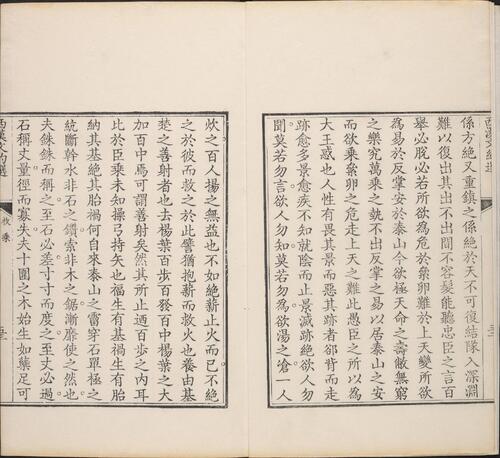 係方絶又重鎮之係絶於天不可復結隊入深淵
難以復出其出不出間不容髮能聽忠臣之言百
舉必脫必若所欲為危於絫卵難於上天變所欲
為易於反掌安於泰山今欲極天命之壽敝無窮
之樂究萬乘之埶不出反掌之易以居泰山之安
而欲乘絫卵之危走上天之難此愚臣之所以為
大王惑也人性有畏其景而惡其跡者卻背而走
跡愈多景愈疾不知就陰而止景滅跡絶欲人勿
聞莫若勿言欲人勿知莫若勿為欲湯之凔一人
炊之百人揚之無益也不如絶薪止火而已不絶
之於彼而救之於此譬猶抱薪而救火也養由基
楚之善射者也去楊葉百步百發百中楊葉之大
加百中焉可謂善射矣然其所止迺百步之內耳
比於臣乘未知操弓持矢也福生有基禍生有胎
納其基絶其胎禍何自來泰山之霤穿石單極之
統斷幹水非石之鑽索非木之鋸漸靡使之然也
夫銖銖而稱之至石必差寸寸而度之至丈必過
石稱丈量徑而寡失夫十圍之木始生如櫱足可
西漢文約選
枚乘